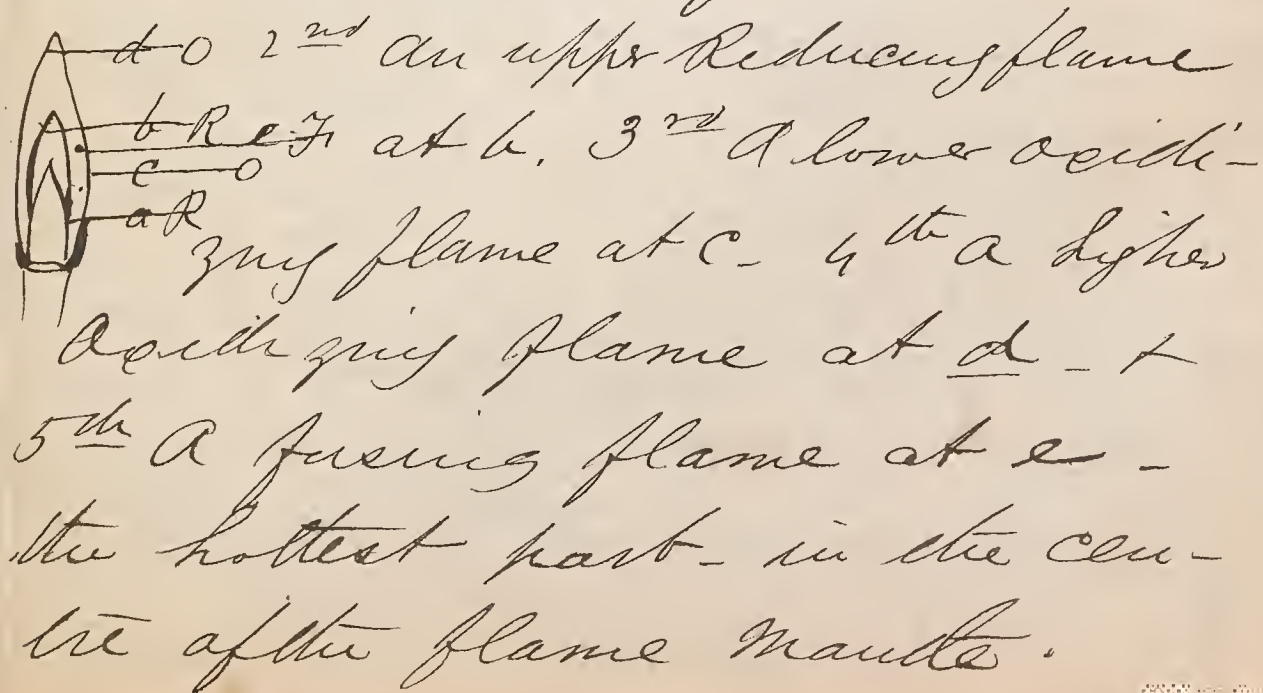 d O 2nd An upper Reducing flame
b R e F at b. 3rd A lower oxidi-
c O
a R
zing flame at c - 4th a higher
Oxidizing flame at d - +
5th A fusing flame at e -
the hottest part - in the cen-
tre of the flame mantle.